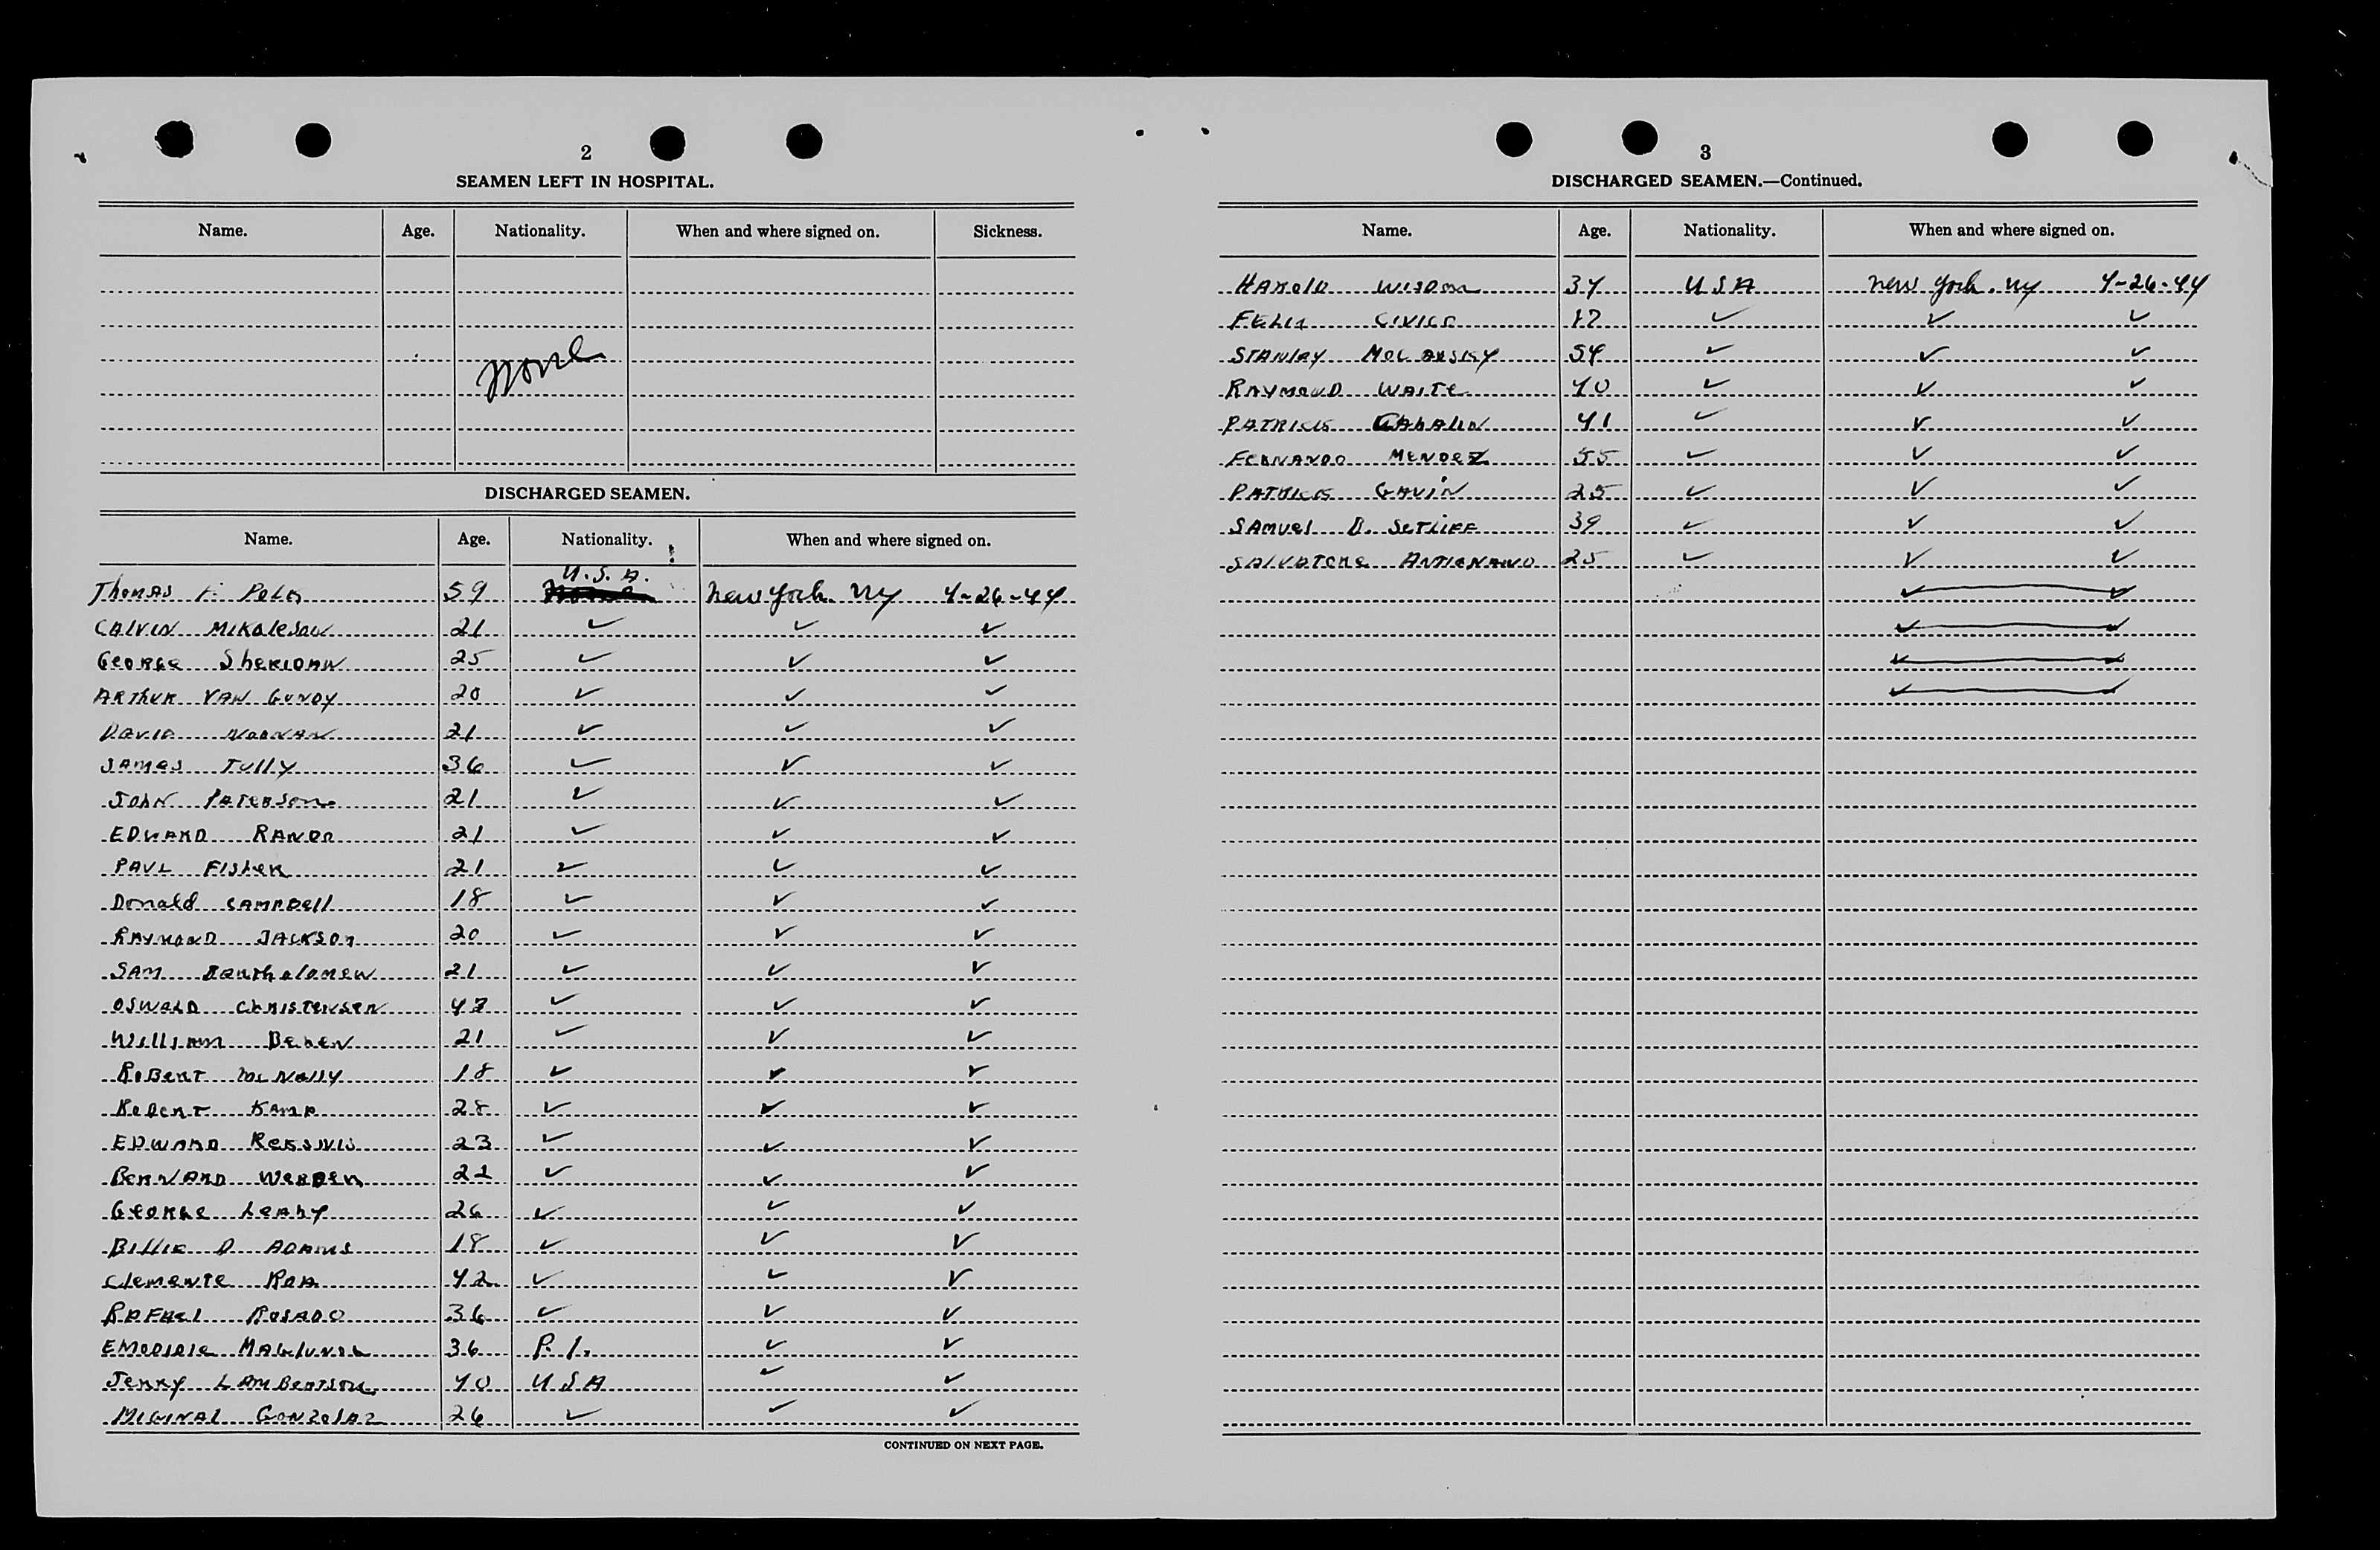 2
SEAMEN LEFT IN HOSPITAL.
Name. Age. Nationality. When and where signed on. Sickness.
None
DISCHARGED SEAMEN.
Name. Age. Nationality. When and where signed on.
U.S.A.
Thomas F. 59 New York. NY 4-26-44
CALVIN MIKALESON 21 ✓ ✓ ✓
GEORGE SHERIDAN 25 ✓ ✓ ✓
ARTHUR VAN GUNDY 20 ✓ ✓ ✓
DAVID NOONAN 21 ✓ ✓ ✓
JAMES TULLY 36 ✓ ✓ ✓
JOHN PATERSON 21 ✓ ✓ ✓
EDWARD RANDO 21 ✓ ✓ ✓
PAUL FISHER 21 ✓ ✓ ✓
Donald CAMPBell 18 ✓ ✓ ✓
RAYMOND JACKSON 20 ✓ ✓ ✓
SAM Bartholomew 21 ✓ ✓ ✓
OSWALD CHRISTENSEN ✓ ✓ ✓
William BEHEN 21 ✓ ✓ ✓
ROBERT McNally 18 ✓ ✓ ✓
ROBERT KAMP 28 ✓ ✓ ✓
EDWARD 23 ✓ ✓ ✓
BERNARD WERDEN 22 ✓ ✓ ✓
GEORGE LEAHY 26 ✓ ✓ ✓
BILLIE D ADAMS 18 ✓ ✓ ✓
Clemente ROA 42 ✓ ✓ ✓
RAFAEL ROSADO 36 ✓ ✓ ✓
36 P.I. ✓ ✓
JERRY LAMBERTSON 40 USA ✓ ✓
GONZOLAZ 26 ✓ ✓ ✓
CONTINUED ON NEXT PAGE.
3
DISCHARGED SEAMEN.—Continued.
Name. Age. Nationality. When and where signed on.
HAROLD WISDOM USA New York. NY 4-26-44
FELIX CIVICO ✓ ✓ ✓
STANLEY 54 ✓ ✓ ✓
RAYMOND WAITE 40 ✓ ✓ ✓
PATRICK CAHALIN 41 ✓ ✓ ✓
FERNANDO MENDEZ 55 ✓ ✓ ✓
PATRICK GAVIN 25 ✓ ✓ ✓
SAMUEL B. SETLIFF 39 ✓ ✓ ✓
SALVATORE ANTIGNANO 25 ✓ ✓ ✓